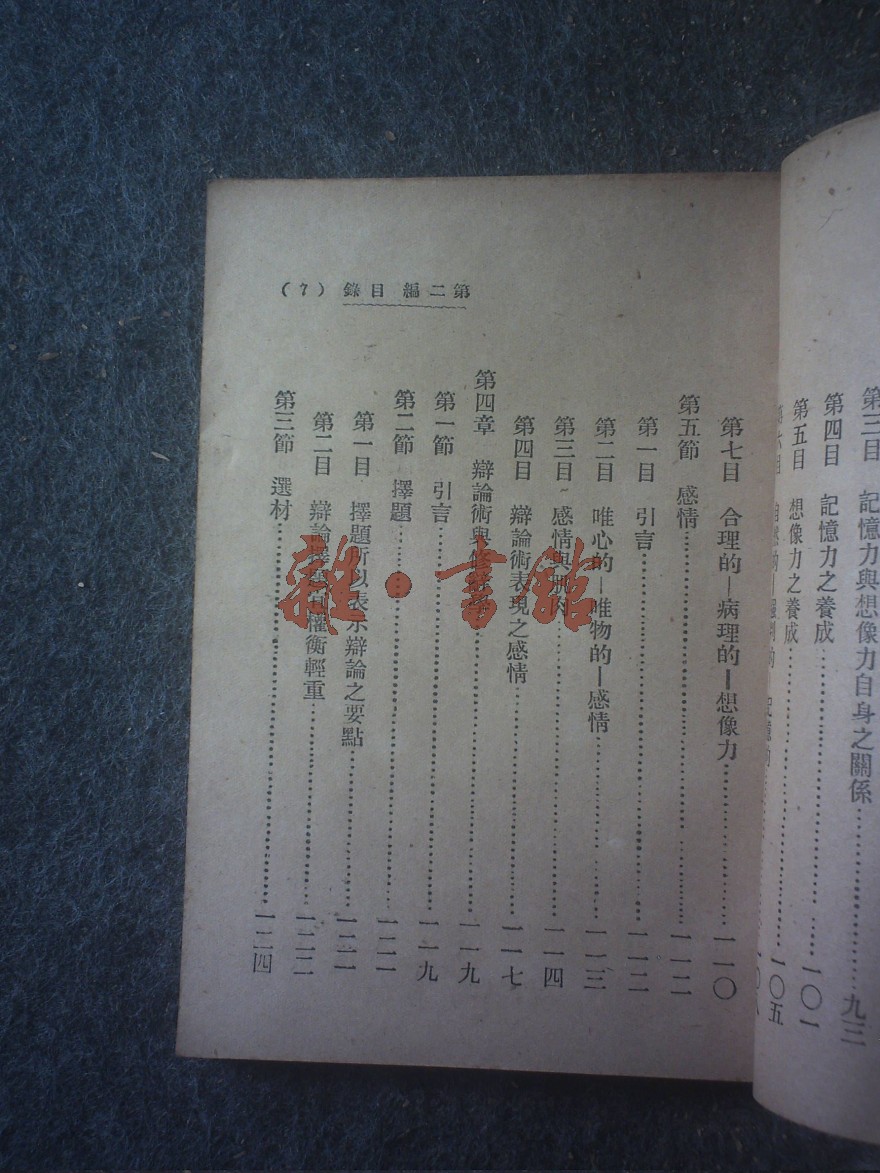 第三目 記憶力與想像力自身之關係……九三
第四目 記憶力之養成……一〇一
第五目 想像力之養成……一〇五
第六目
第二編目錄（7）
第七目 合理的—病理的—想像力……一一〇
第五節 感情……一一二
第一目 引言……一一二
第二目 唯心的—唯物的—感情……一一三
第三目 感情與肌肉……一一四
第四目 辯論術表現之感情……一一七
第四章 辯論術與修辭學……一一九
第一節 引言……一一九
第二節 擇題……一二一
第一目 擇題所以表示辯論之要點……一二一
第二目 辯論擇題 權衡輕重……一二三
第三節 選材……一二四
雜·書館